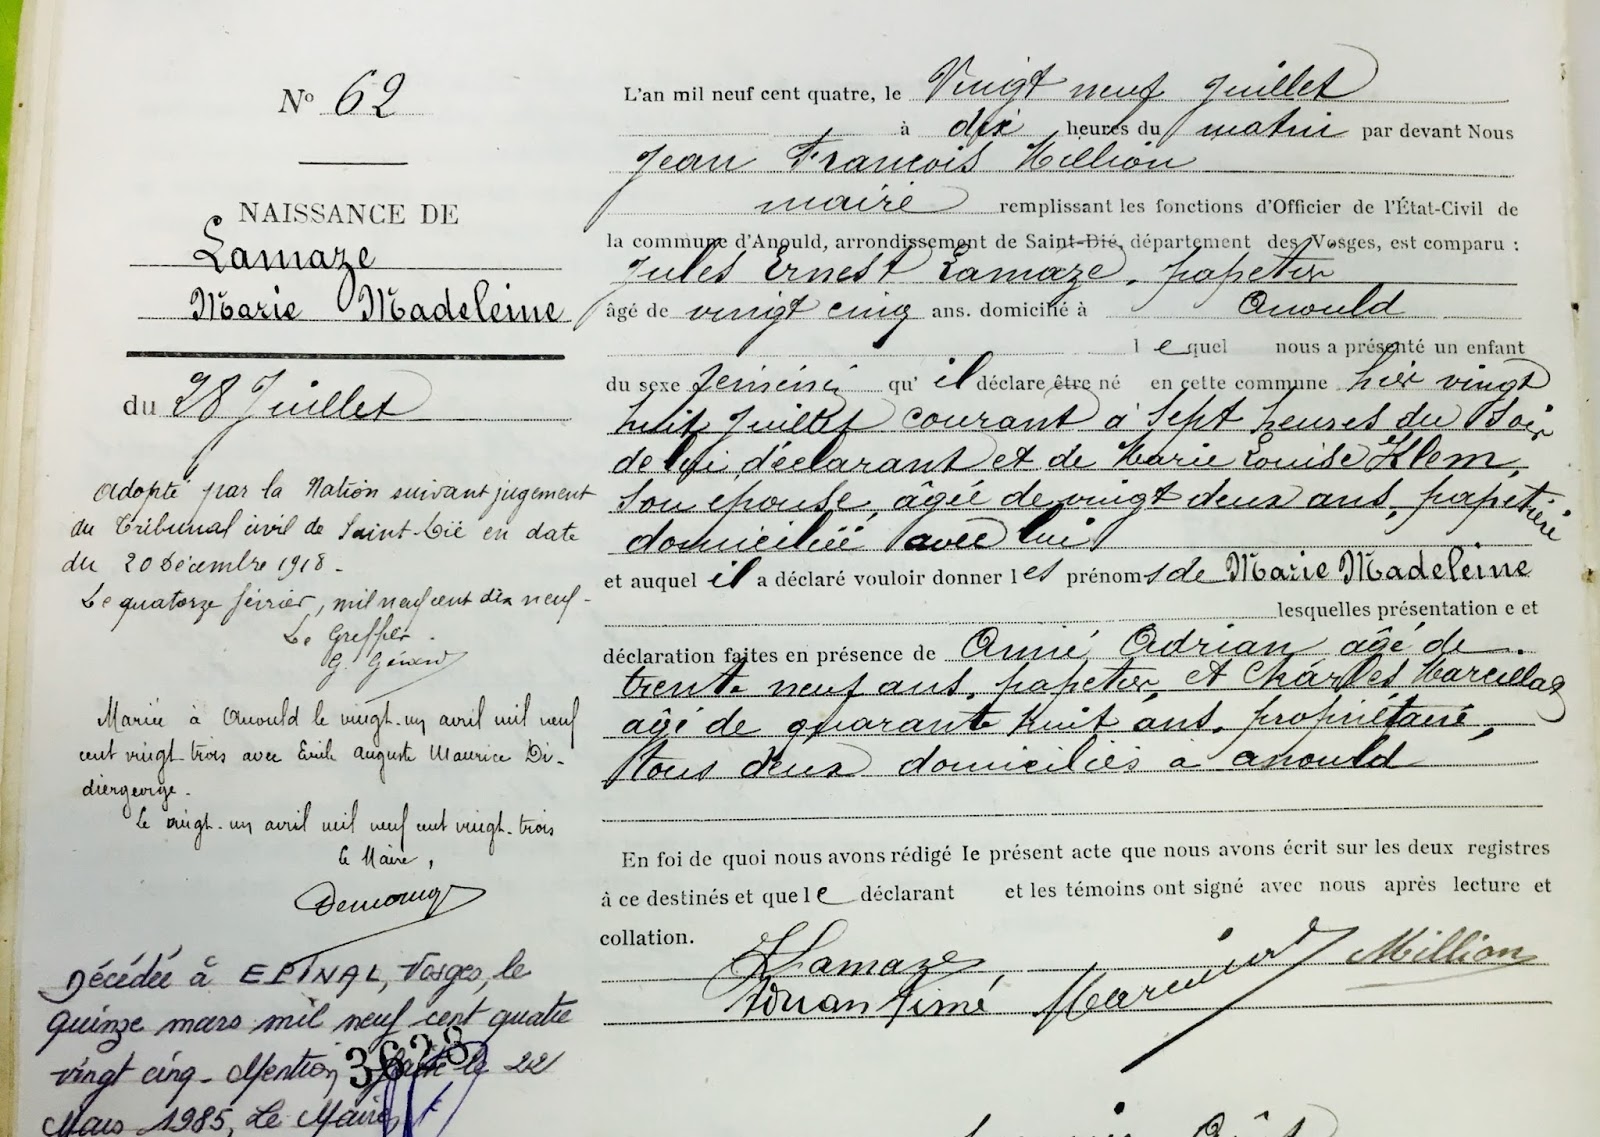 N° 62
NAISSANCE DE
Lamaze
Marie Madeleine
du 28 Juillet
Adopté par la Nation suivant jugement
du Tribunal civil de Saint-Dié en date
du 20 Décembre 1918.
Le quatorze février, mil neuf cent dix neuf.
Le Greffier.
G. Gérard
Mariée à Anould le vingt-un avril mil neuf
cent vingt-trois avec Emile Auguste Maurice Di-
diergeorge.
Le vingt-un avril mil neuf cent vingt-trois
Le Maire,
Décédée à EPINAL, Vosges, le
quinze mars mil neuf cent quatre
vingt cinq. Mention faite le 22
Mars 1985, Le Maire,
3628
L'an mil neuf cent quatre, le Vingt neuf Juillet
à dix heures du matin par devant Nous
Jean François Million
maire remplissant les fonctions d'Officier de l'État-Civil de
la commune d'Anould, arrondissement de Saint-Dié, département des Vosges, est comparu :
Jules Ernest Lamaze, papetier
âgé de vingt cinq ans. domicilié à Anould
lequel nous a présenté un enfant
du sexe féminin qu'il déclare être né en cette commune hier vingt
huit Juillet courant à Sept heures du Soir
de lui déclarant et de Marie Louise Klem,
son épouse, âgée de vingt deux ans, papetière
domiciliée avec lui
et auquel il a déclaré vouloir donner les prénoms de Marie Madeleine
lesquelles présentation e et
déclaration faites en présence de Aimé Adrian âgé de
trente neuf ans, papetier, et Charles
âgé de quarante huit ans, propriétaire,
tous deux domiciliés à anould
En foi de quoi nous avons rédigé le présent acte que nous avons écrit sur les deux registres
à ce destinés et que le déclarant et les témoins ont signé avec nous après lecture et
collation.
Lamaze
Million
Adrian Aimé